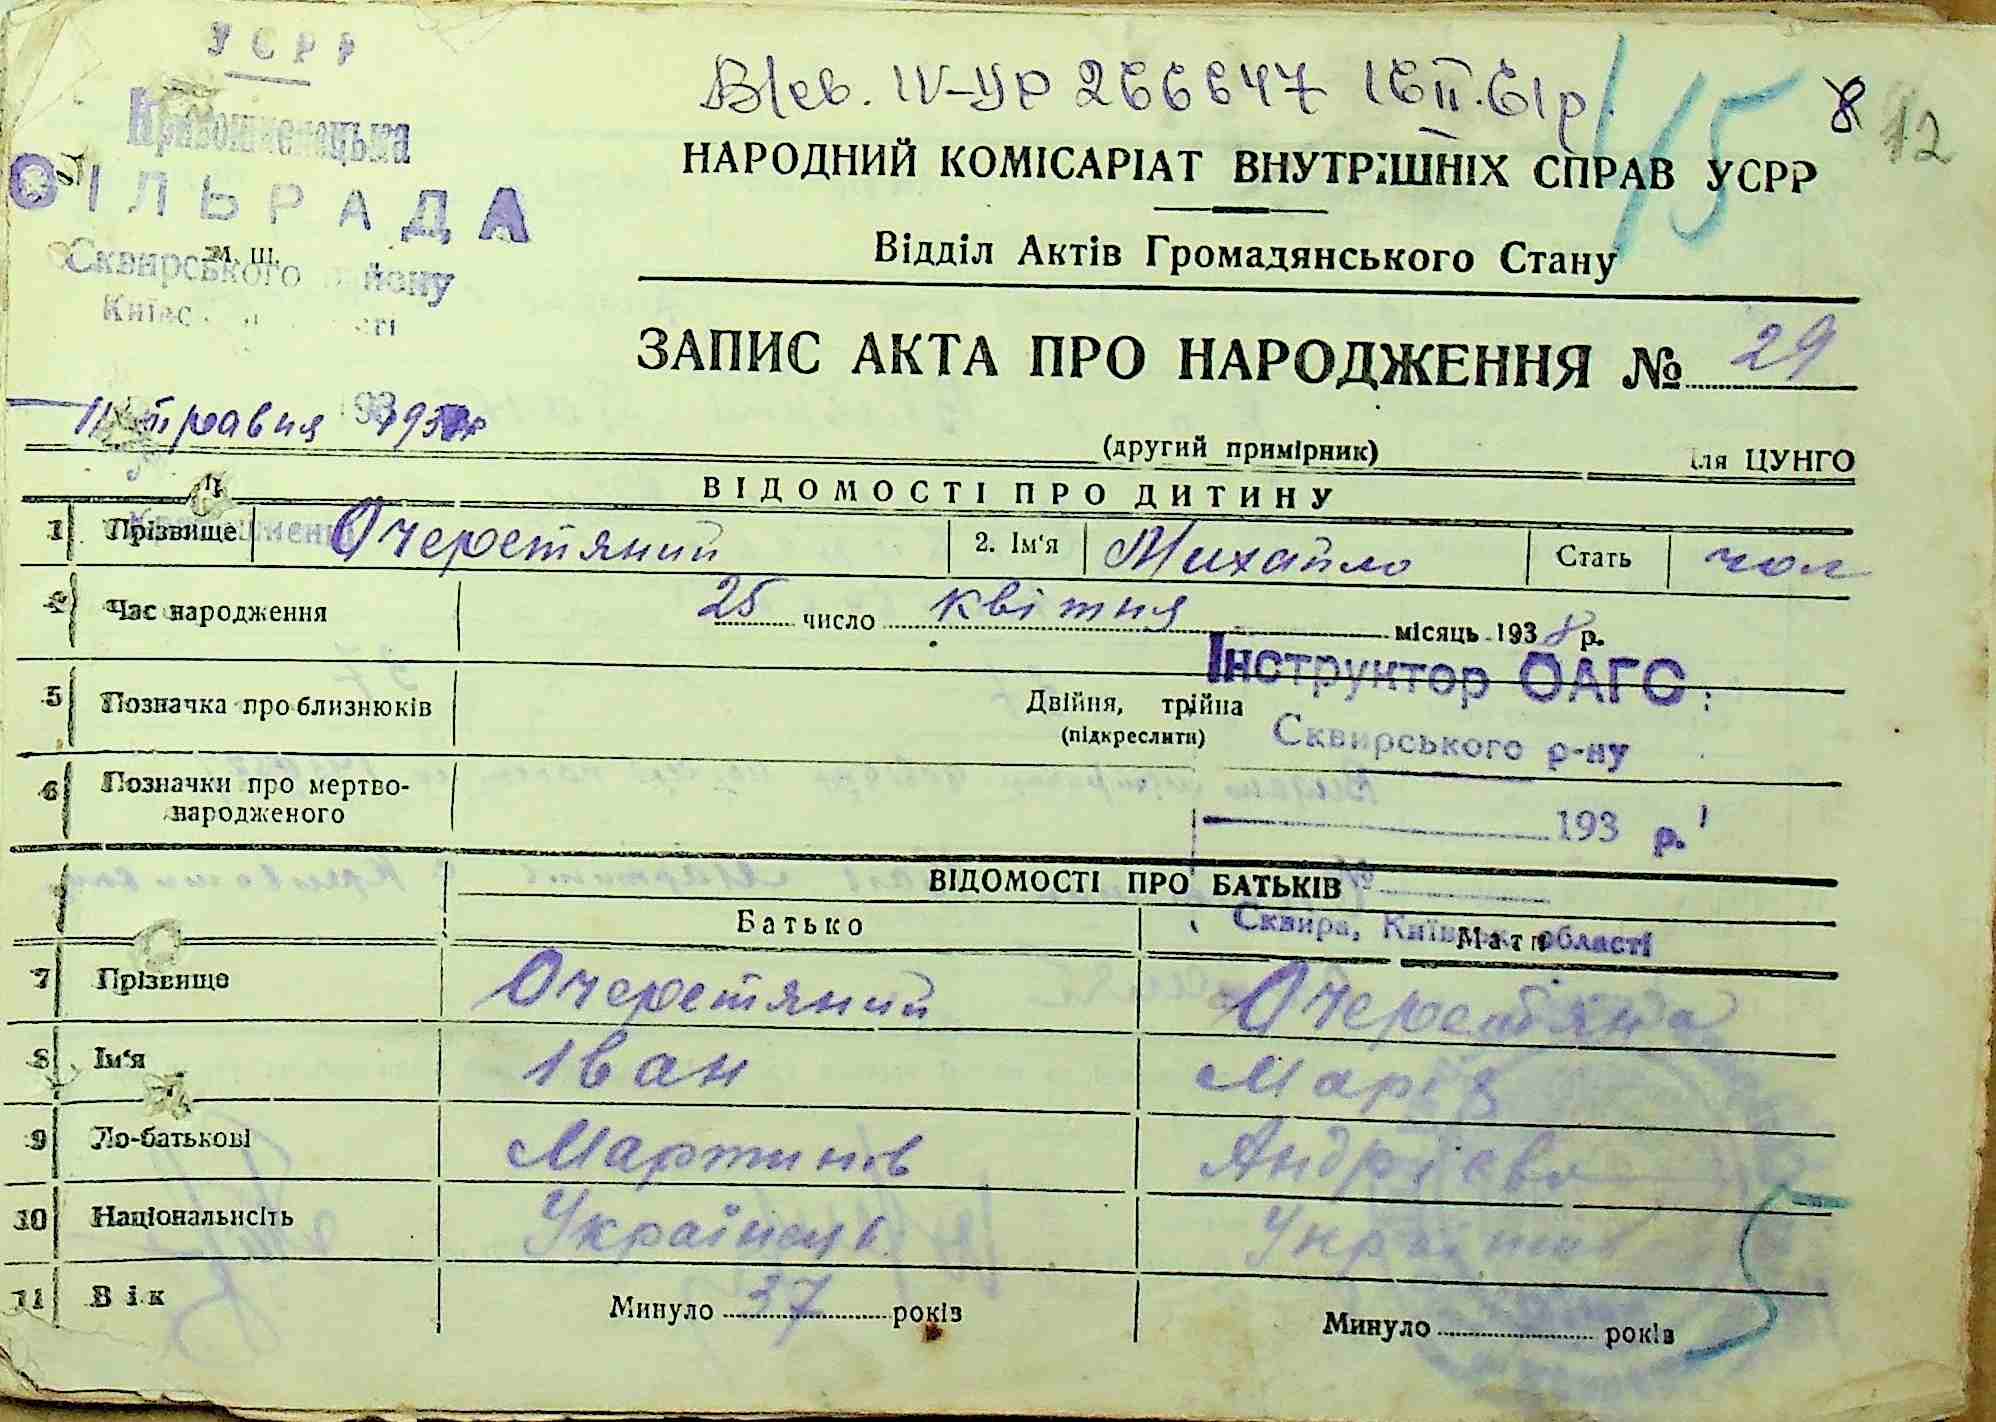 УСРР
Кривошиєнецька
СІЛЬРАДА
М. Ш.
Сквирського району
IV-УР 266647 16 II. 61р
15 8 12
НАРОДНИЙ КОМІСАРІАТ ВНУТРІШНІХ СПРАВ УСРР
Відділ Актів Громадянського Стану
ЗАПИС АКТА ПРО НАРОДЖЕННЯ № 29
11 травня 1938р
(другий примірник) для ЦУНГО
ВІДОМОСТІ ПРО ДИТИНУ
1 Прізвище Очеретяний 2. Ім'я Михайло Стать чол
Час народження 25 число квітня місяць 1938 р.
Інструктор ОАГС
5 Позначка про близнюків Двійня, трійна
(підкреслити)
Сквирського р-ну
6 Позначки про мертво-
народженого
193 р.
ВІДОМОСТІ ПРО БАТЬКІВ
Батько Мати
Сквира, Київськ. області
7 Прізвище Очеретяний Очеретяна
8 Ім'я Іван Марія
9 По-батькові Мартинів Андрієва
10 Національність Українець
11 Вік Минуло 37 років Минуло років